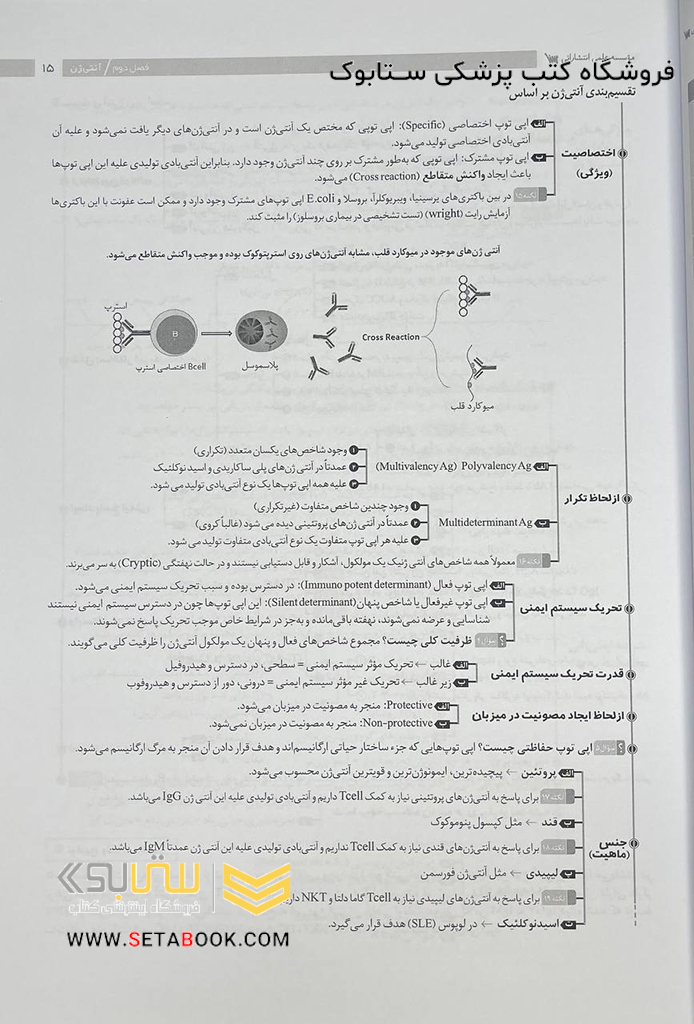 ۱۵
فصل دوم / آنتی‌ژن
مؤسسه علمی انتشاراتی
فروشگاه کتب پزشکی ستابوک
تقسیم‌بندی آنتی‌ژن بر اساس
اختصاصیت (ویژگی)
الف اپی توپ اختصاصی (Specific): اپی توپی که مختص یک آنتی‌ژن است و در آنتی‌ژن‌های دیگر یافت نمی‌شود و علیه آن
آنتی‌بادی اختصاصی تولید می‌شود.
ب اپی توپ مشترک: اپی توپی که به‌طور مشترک بر روی چند آنتی‌ژن وجود دارد. بنابراین آنتی‌بادی تولیدی علیه این اپی توپ‌ها
باعث ایجاد واکنش متقاطع (Cross reaction) می‌شود.
نکته ۱۵ در بین باکتری‌های یرسینیا، ویبریوکلرا، بروسلا و E.coli اپی توپ‌های مشترک وجود دارد و ممکن است عفونت با این باکتری‌ها
آزمایش رایت (wright) (تست تشخیصی در بیماری بروسلوز) را مثبت کند.
آنتی ژن‌های موجود در میوکارد قلب، مشابه آنتی‌ژن‌های روی استرپتوکوک بوده و موجب واکنش متقاطع می‌شود.
استرپ
B
Bcell اختصاصی استرپ
پلاسموسل
Cross Reaction
میوکارد قلب
ازلحاظ تکرار
الف (Multivalency Ag) Polyvalency Ag
۱ وجود شاخص‌های یکسان متعدد (تکراری)
۲ عمدتاً در آنتی ژن‌های پلی ساکاریدی و اسید نوکلئیک
۳ علیه همه اپی توپ‌ها یک نوع آنتی‌بادی تولید می شود.
ب Multideterminant Ag
۱ وجود چندین شاخص متفاوت (غیرتکراری)
۲ عمدتاً در آنتی ژن‌های پروتئینی دیده می شود (غالباً کروی)
۳ علیه هر اپی توپ متفاوت یک نوع آنتی‌بادی متفاوت تولید می شود.
نکته ۱۶ معمولاً همه شاخص‌های آنتی ژنیک یک مولکول، آشکار و قابل دستیابی نیستند و در حالت نهفتگی (Cryptic) به سر می‌برند.
تحریک سیستم ایمنی
الف اپی توپ فعال (Immuno potent determinant): در دسترس بوده و سبب تحریک سیستم ایمنی می‌شود.
ب اپی توپ غیرفعال یا شاخص پنهان (Silent determinant): این اپی توپ‌ها چون در دسترس سیستم ایمنی نیستند
شناسایی و عرضه نمی‌شوند، نهفته باقی‌مانده و به‌جز در شرایط خاص موجب تحریک پاسخ نمی‌شوند.
؟ سوال ۴ ظرفیت کلی چیست؟ مجموع شاخص‌های فعال و پنهان یک مولکول آنتی‌ژن را ظرفیت کلی می‌گویند.
قدرت تحریک سیستم ایمنی
الف غالب ← تحریک مؤثر سیستم ایمنی = سطحی، در دسترس و هیدروفیل
ب زیر غالب ← تحریک غیر مؤثر سیستم ایمنی = درونی، دور از دسترس و هیدروفوب
ازلحاظ ایجاد مصونیت در میزبان
الف Protective: منجر به مصونیت در میزبان می‌شود.
ب Non-protective: منجر به مصونیت در میزبان نمی‌شود.
؟ سوال ۵ اپی توپ حفاظتی چیست؟ اپی توپ‌هایی که جزء ساختار حیاتی ارگانیسم‌اند و هدف قرار دادن آن منجر به مرگ ارگانیسم می‌شود.
جنس (ماهیت)
الف پروتئین ← پیچیده‌ترین، ایمونوژن‌ترین و قویترین آنتی‌ژن محسوب می‌شود.
نکته ۱۷ برای پاسخ به آنتی‌ژن‌های پروتئینی نیاز به کمک Tcell داریم و آنتی‌بادی تولیدی علیه این آنتی ژن IgG می‌باشد.
ب قند ← مثل کپسول پنوموکوک
نکته ۱۸ برای پاسخ به آنتی‌ژن‌های قندی نیاز به کمک Tcell نداریم و آنتی‌بادی تولیدی علیه این آنتی ژن عمدتاً IgM می‌باشد.
ج لیپیدی ← مثل آنتی‌ژن فورسمن
نکته ۱۹ برای پاسخ به آنتی‌ژن‌های لیپیدی نیاز به Tcell گاما دلتا و NKT داریم
د اسیدنوکلئیک ← در لوپوس (SLE) هدف قرار می‌گیرد.
ستابوک
فروشگاه اینترنتی کتاب
WWW.SETABOOK.COM